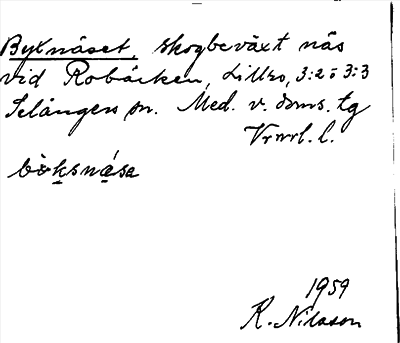 Byknäset, skogbeväxt näs
vid Robäcken, Lillro, 3:2 o 3:3
Selångers sn. Med. v. doms. tg
Vrnrl. l.
bö̀ksnása
1959
K. Nilsson